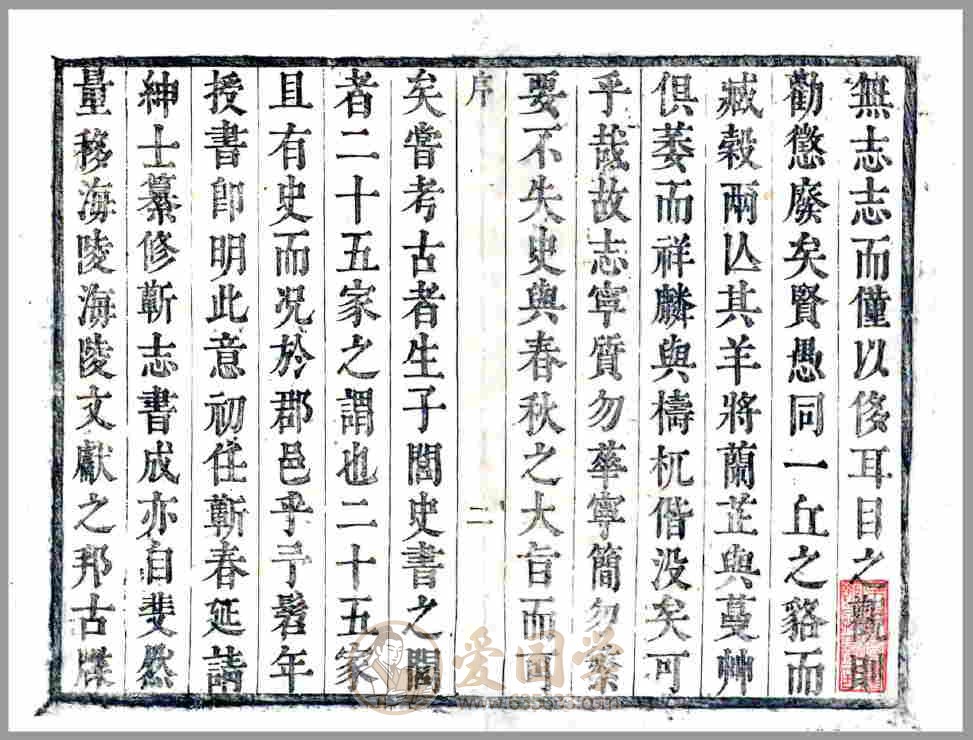 無志志而僅以侈耳目之觀則
勸懲廢矣賢愚同一丘之貉而
臧穀兩亾其羊將蘭芷與蔓艸
俱萎而祥麟與檮杌偕没矣可
乎哉故志寧質勿華寧簡勿繁
要不失史與春秋之大旨而可
序 二
矣嘗考古者生子閭史書之閭
者二十五家之謂也二十五家
且有史而况於郡邑乎予髫年
授書卽明此意初任蘄春延請
紳士纂修蘄志書成亦自斐然
量移海陵海陵文獻之邦古牒
爱国学